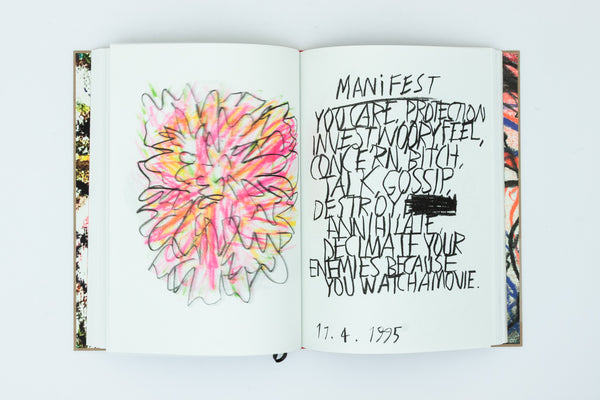 MANiFEST
YOU CARE, PROTECTION
INVEST, WOORY, FEEL,
CONCERN, BITCH,
TALK, GOSSIP,
DESTROY
ANNIHILATE,
DECIMATE YOUR
ENEMIES BECAUSE
YOU WATCH A MOVIE.
11. 4. 1995